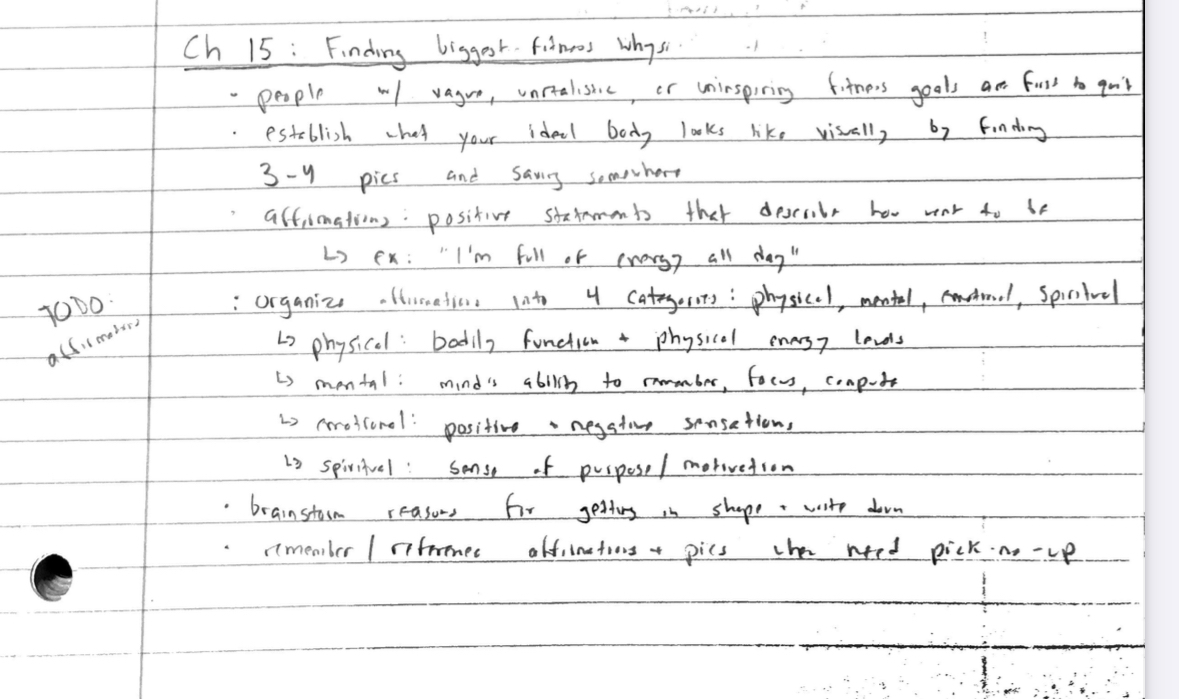 Ch 15: Finding biggest fitness whys:
• people w/ vague, unrealistic, or uninspiring fitness goals are first to quit
• establish what your ideal body looks like visually by finding
3-4 pics and saving somewhere
• affirmations: positive statements that describe how want to be
↳ ex: "I'm full of energy all day"
TODO:
affirmations
: organize affirmations into 4 categories: physical, mental, emotional, spiritual
↳ physical: bodily function + physical energy levels
↳ mental: mind's ability to remember, focus, compute
↳ emotional: positive + negative sensations
↳ spiritual: sense of purpose/motivation
• brainstorm reasons for getting in shape + write down
• remember/reference affirmations + pics when need pick-me-up